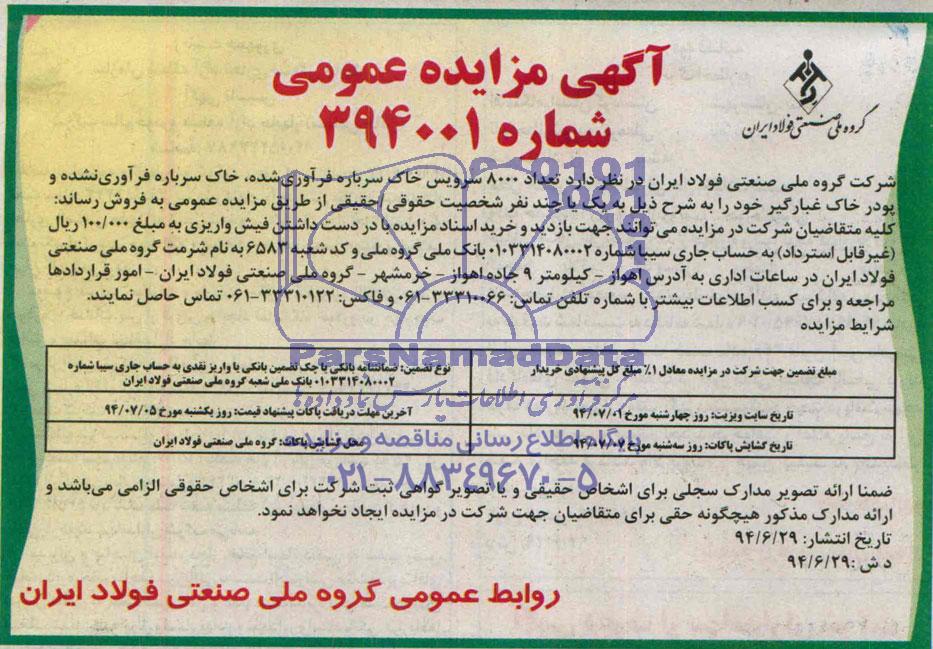 آگهی مزایده عمومی
شماره ۳۹۴۰۰۱
گروه ملی صنعتی فولاد ایران
شرکت گروه ملی صنعتی فولاد ایران در نظر دارد تعداد ۸۰۰۰ سرویس خاک سرباره فرآوری‌شده، خاک سرباره فرآوری‌نشده و
پودر خاک غبارگیر خود را به شرح ذیل به یک یا چند نفر شخصیت حقوقی/حقیقی از طریق مزایده عمومی به فروش رساند:
کلیه متقاضیان شرکت در مزایده می‌توانند جهت بازدید و خرید اسناد مزایده با در دست داشتن فیش واریزی به مبلغ ۱۰۰/۰۰۰ ریال
(غیرقابل استرداد) به حساب جاری سیبا شماره ۰۱۰۳۳۱۴۰۸۰۰۰۲ بانک ملی گروه ملی و کد شعبه ۶۵۸۳ به نام شرمت گروه ملی صنعتی
فولاد ایران در ساعات اداری به آدرس اهواز - کیلومتر ۹ جاده اهواز - خرمشهر - گروه ملی صنعتی فولاد ایران - امور قراردادها
مراجعه و برای کسب اطلاعات بیشتر با شماره تلفن تماس: ۳۳۳۱۰۰۶۶-۰۶۱ و فاکس: ۳۳۳۱۰۱۲۲-۰۶۱ تماس حاصل نمایند.
شرایط مزایده
مبلغ تضمین جهت شرکت در مزایده معادل ۱٪ مبلغ کل پیشنهادی خریدار
نوع تضمین: ضمانتنامه بانکی یا چک تضمین بانکی یا واریز نقدی به حساب جاری سیبا شماره
۰۱۰۳۳۱۴۰۸۰۰۰۲ بانک ملی شعبه گروه ملی صنعتی فولاد ایران
تاریخ سایت ویزیت: روز چهارشنبه مورخ ۹۴/۰۷/۰۱
آخرین مهلت دریافت پاکات پیشنهاد قیمت: روز یکشنبه مورخ ۹۴/۰۷/۰۵
تاریخ گشایش پاکات: روز سه‌شنبه مورخ ۹۴/۰۷/۰۷
محل گشایش پاکات: گروه ملی صنعتی فولاد ایران
ParsNamadData
مرکز فرآوری اطلاعات پارس نماد داده‌ها
پایگاه اطلاع رسانی مناقصه و مزایده
۰۲۱-۸۸۳۴۹۶۷۰-۵
ضمنا ارائه تصویر مدارک سجلی برای اشخاص حقیقی و یا تصویر گواهی ثبت شرکت برای اشخاص حقوقی الزامی می‌باشد و
ارائه مدارک مذکور هیچگونه حقی برای متقاضیان جهت شرکت در مزایده ایجاد نخواهد نمود.
تاریخ انتشار: ۹۴/۶/۲۹
د ش :۹۴/۶/۲۹
روابط عمومی گروه ملی صنعتی فولاد ایران